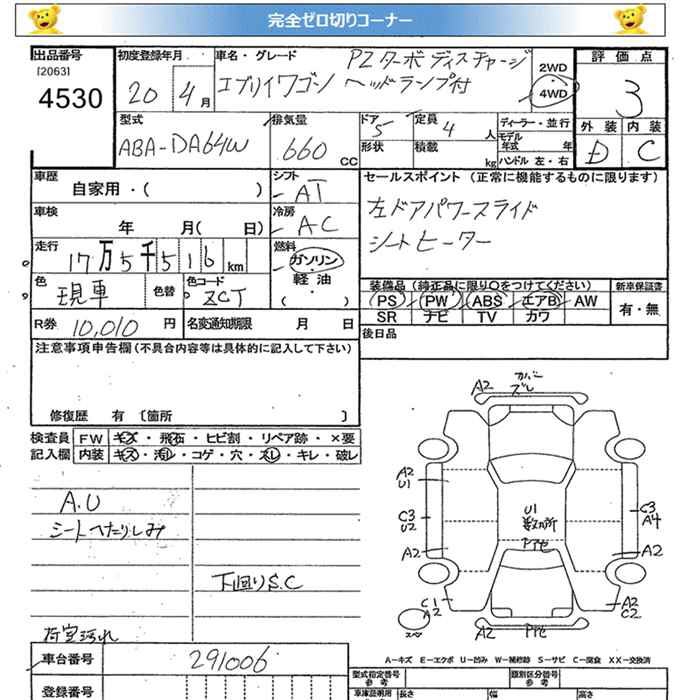 完全ゼロ切りコーナー
出品番号
[2063]
4530
初度登録年月
20 4月
車名・グレード
PZターボ ディスチャージ
エブリイワゴン ヘッドランプ付
2WD
4WD
評価点
3
外装 内装
D C
型式
ABA-DA64W
排気量
660 cc
ドア
5
形状
定員
4人
積載
kg
ディーラー・並行
モデル
年式 年
ハンドル 左・右
車歴
自家用・( )
シフト
AT
セールスポイント (正常に機能するものに限ります)
左ドアパワースライド
シートヒーター
車検
年 月( 日)
冷房
AC
走行
17万5千516km
燃料
ガソリン
軽油
( )
色
現車
色替
色コード
ZCT
装備品 (純正品に限り〇をつけてください)
PS PW ABS エアB AW
SR ナビ TV カワ
新車保証書
有・無
R券 10,010円
名変通知期限 月 日
後日品
注意事項申告欄(不具合内容等は具体的に記入して下さい)
修復歴 有 〔箇所 〕
検査員
記入欄
FW キズ・飛石・ヒビ割・リペア跡・×要
内装 キズ・汚れ・コゲ・穴・スレ・キレ・破レ
A.U
シートヘたりしみ
下回りS.C
荷室汚れ
A2 カバー
ズレ
A2
U1
C3
U2
A2
C1
A2
スペ
U1
C3
A4
A2
A2
C2
A2
車台番号
291006
登録番号
A-キズ E-エクボ U-凹み W-補修跡 S-サビ C-腐食 XX-交換済
型式指定番号
参考
類別区分番号
参考
車庫証明用
長さ 幅 高さ